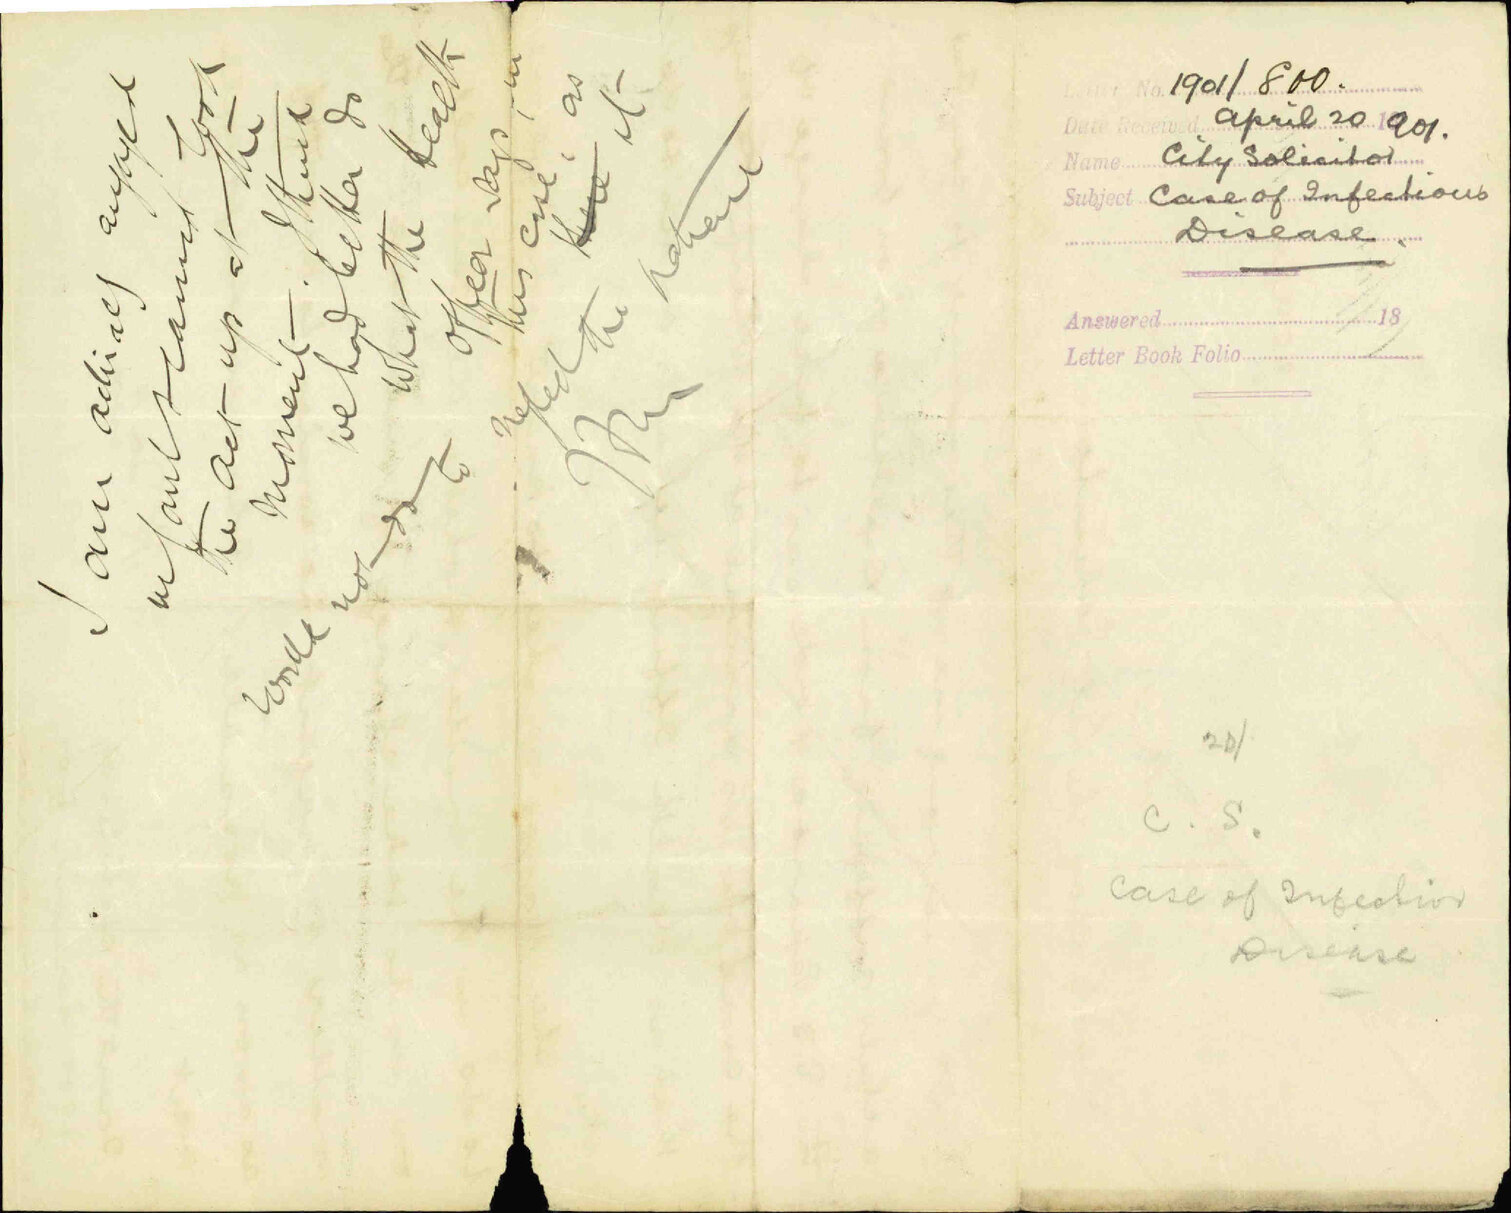 I am always angry &
cannot look
the act up at the
moment. I think
we had better do
what the health
officer says, in
this case, as it
would not do to
neglect the patient
Letter No. 1901/800.
Date Received April 20 1901.
Name City Solicitor
Subject Case of Infectious
Disease.
Answered 18
Letter Book Folio
20/
C. S.
Case of Infectious
Disease